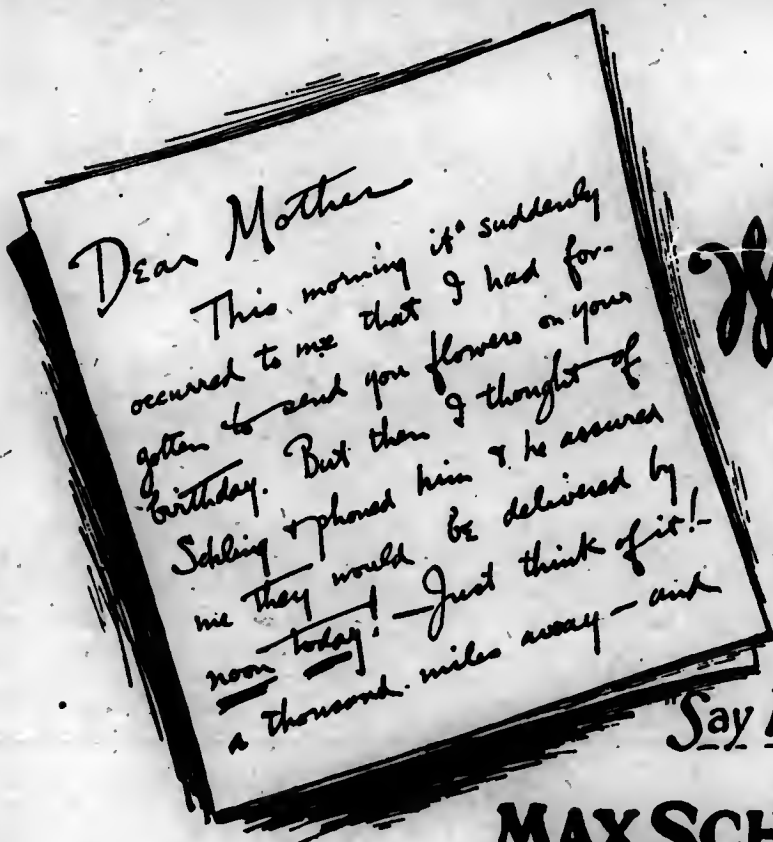 Dear Mother
This morning it suddenly
occurred to me that I had for-
gotten to send you flowers on your
birthday. But then I thought of
Schling & phoned him & he assured
me they would be delivered by
noon today! — Just think of it! —
a thousand miles away — and
W
"Say
MAX SCH